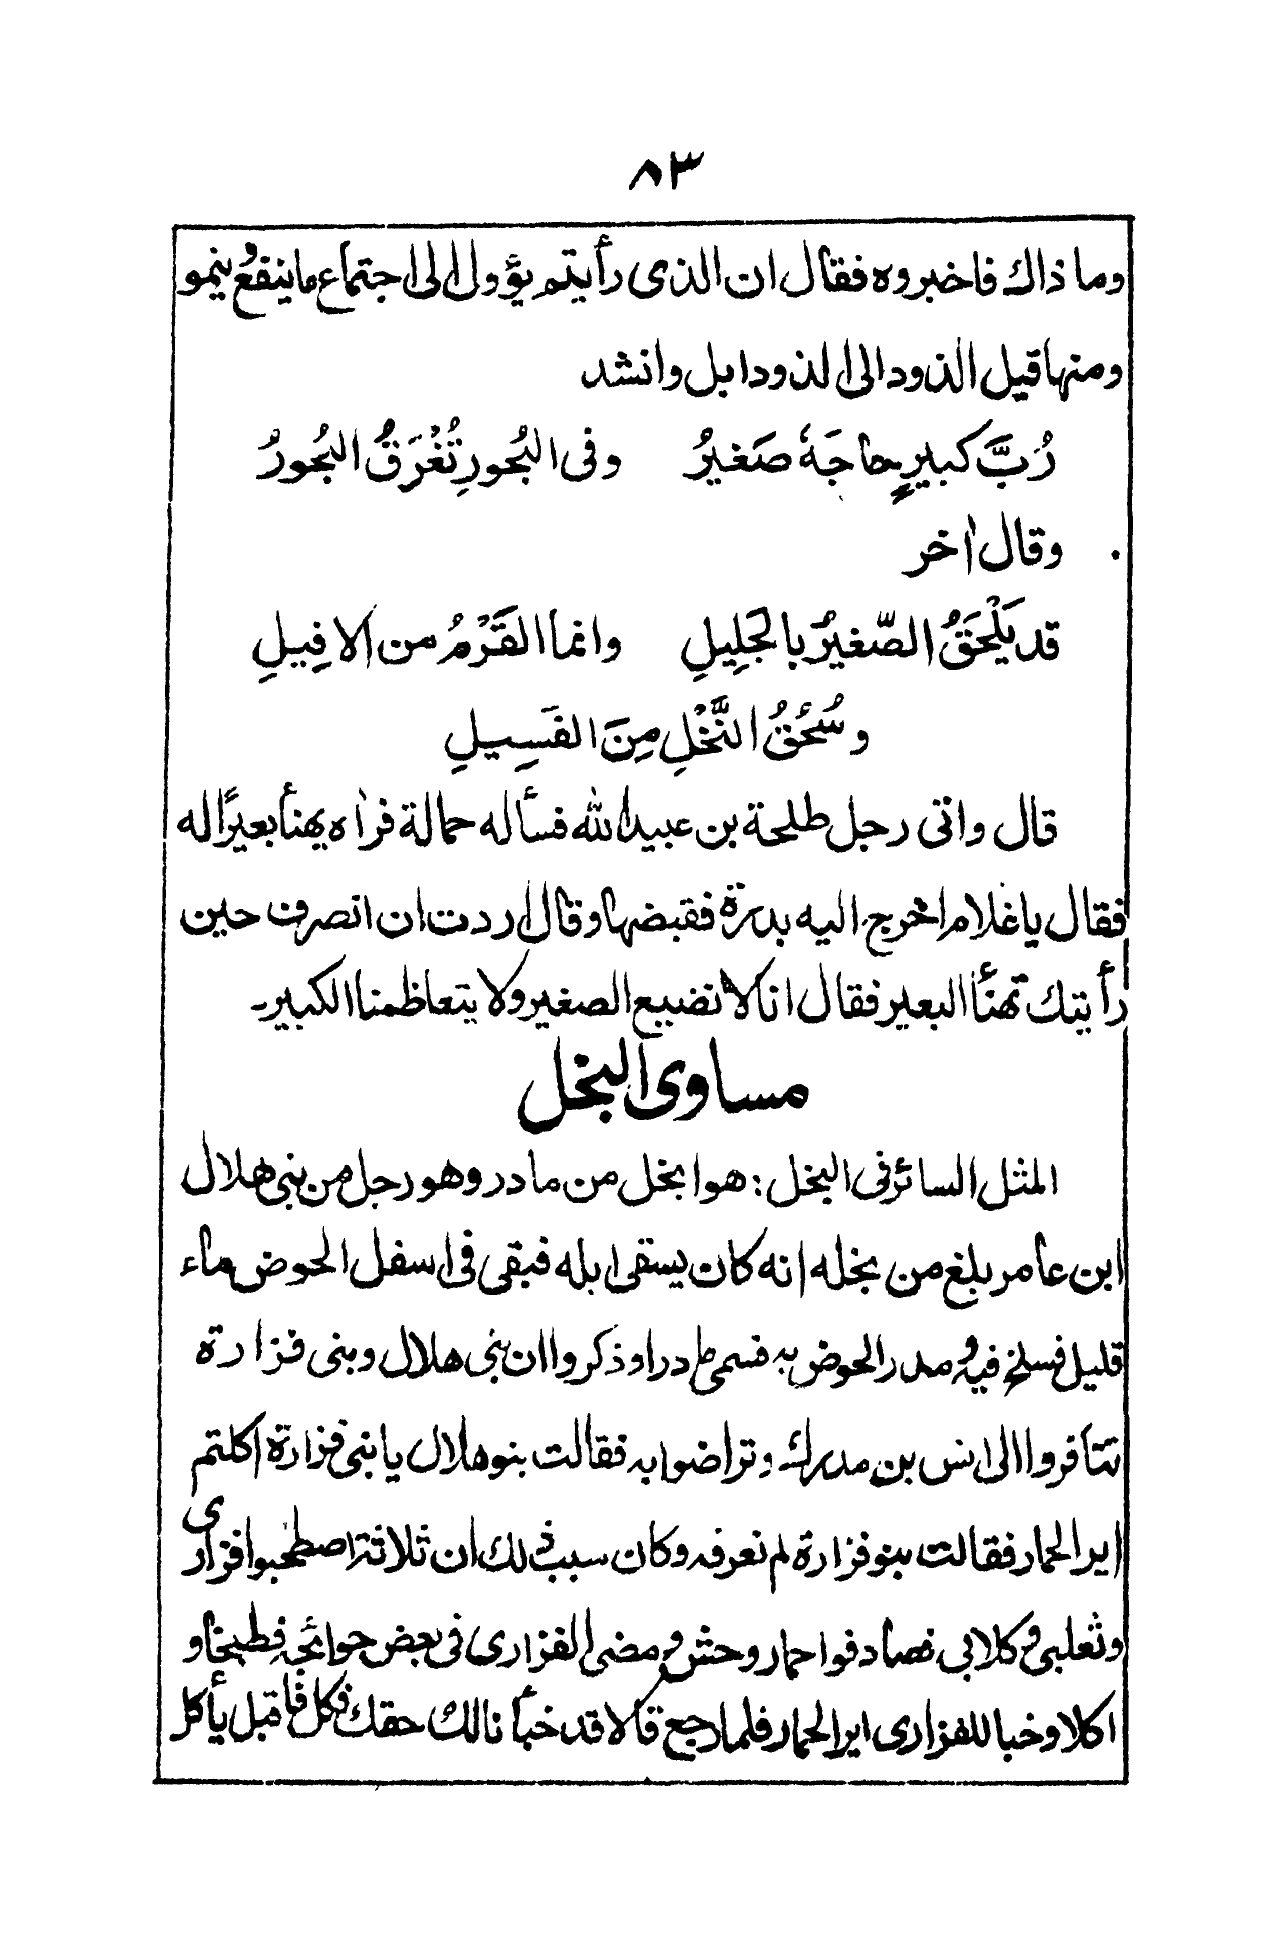 ٨٣
وما ذاك فاخبروه فقال ان الذى رأيتم يؤول الى اجتماع ما ينفع ينمو
ومنها قيل الذود الى الذود ابل وانشد
رُبَّ كبيرٍ حاجَهٗ صَغيرُ وفى البُحورِ تُغْرَقُ البُحورُ
وقال اٰخر
قد يَلْحَقُ الصّغيرُ بالجَلِيلِ وانما القَرْمُ من الافِيلِ
وسُحُقُ النَّخْلِ مِنَ الفَسِيلِ
قال واتى رجل طلحة بن عبيد الله فسأله حمالة فراٰه يهنأ بعيرًا له
فقال يا غلام اخرج اليه بدرة فقبضها وقال اردت ان انصرف حين
رأيتك تهنأ البعير فقال انا لا نضيع الصغير ولا يتعاظمنا الكبير۔
مساوى البخل
المثل السائر فى البخل: هو ابخل من مادر وهو رجل من بنى هلال
ابن عامر بلغ من بخله انه كان يسقى ابله فبقى فى اسفل الحوض ماء
قليل فسلح فيه ومدر الحوض به فسمى مادرا وذكروا ان بنى هلال وبنى فزارة
تنافروا الى انس بن مدرك وتراضوا به فقالت بنو هلال يا بنى فزارة اكلتم
اير الحمار فقالت بنو فزارة لم نعرفه وكان سبب ذلك ان ثلاثة اصطحبوا فزارى
وثعلبى وكلابى فصادفوا حمار وحش ومضى الفزارى فى بعض حوائجه فطبخا و
اكلا وخبا للفزارى اير الحمار فلما رجع قالا قد خبأنا لك حقك فكل فاقبل يأكل